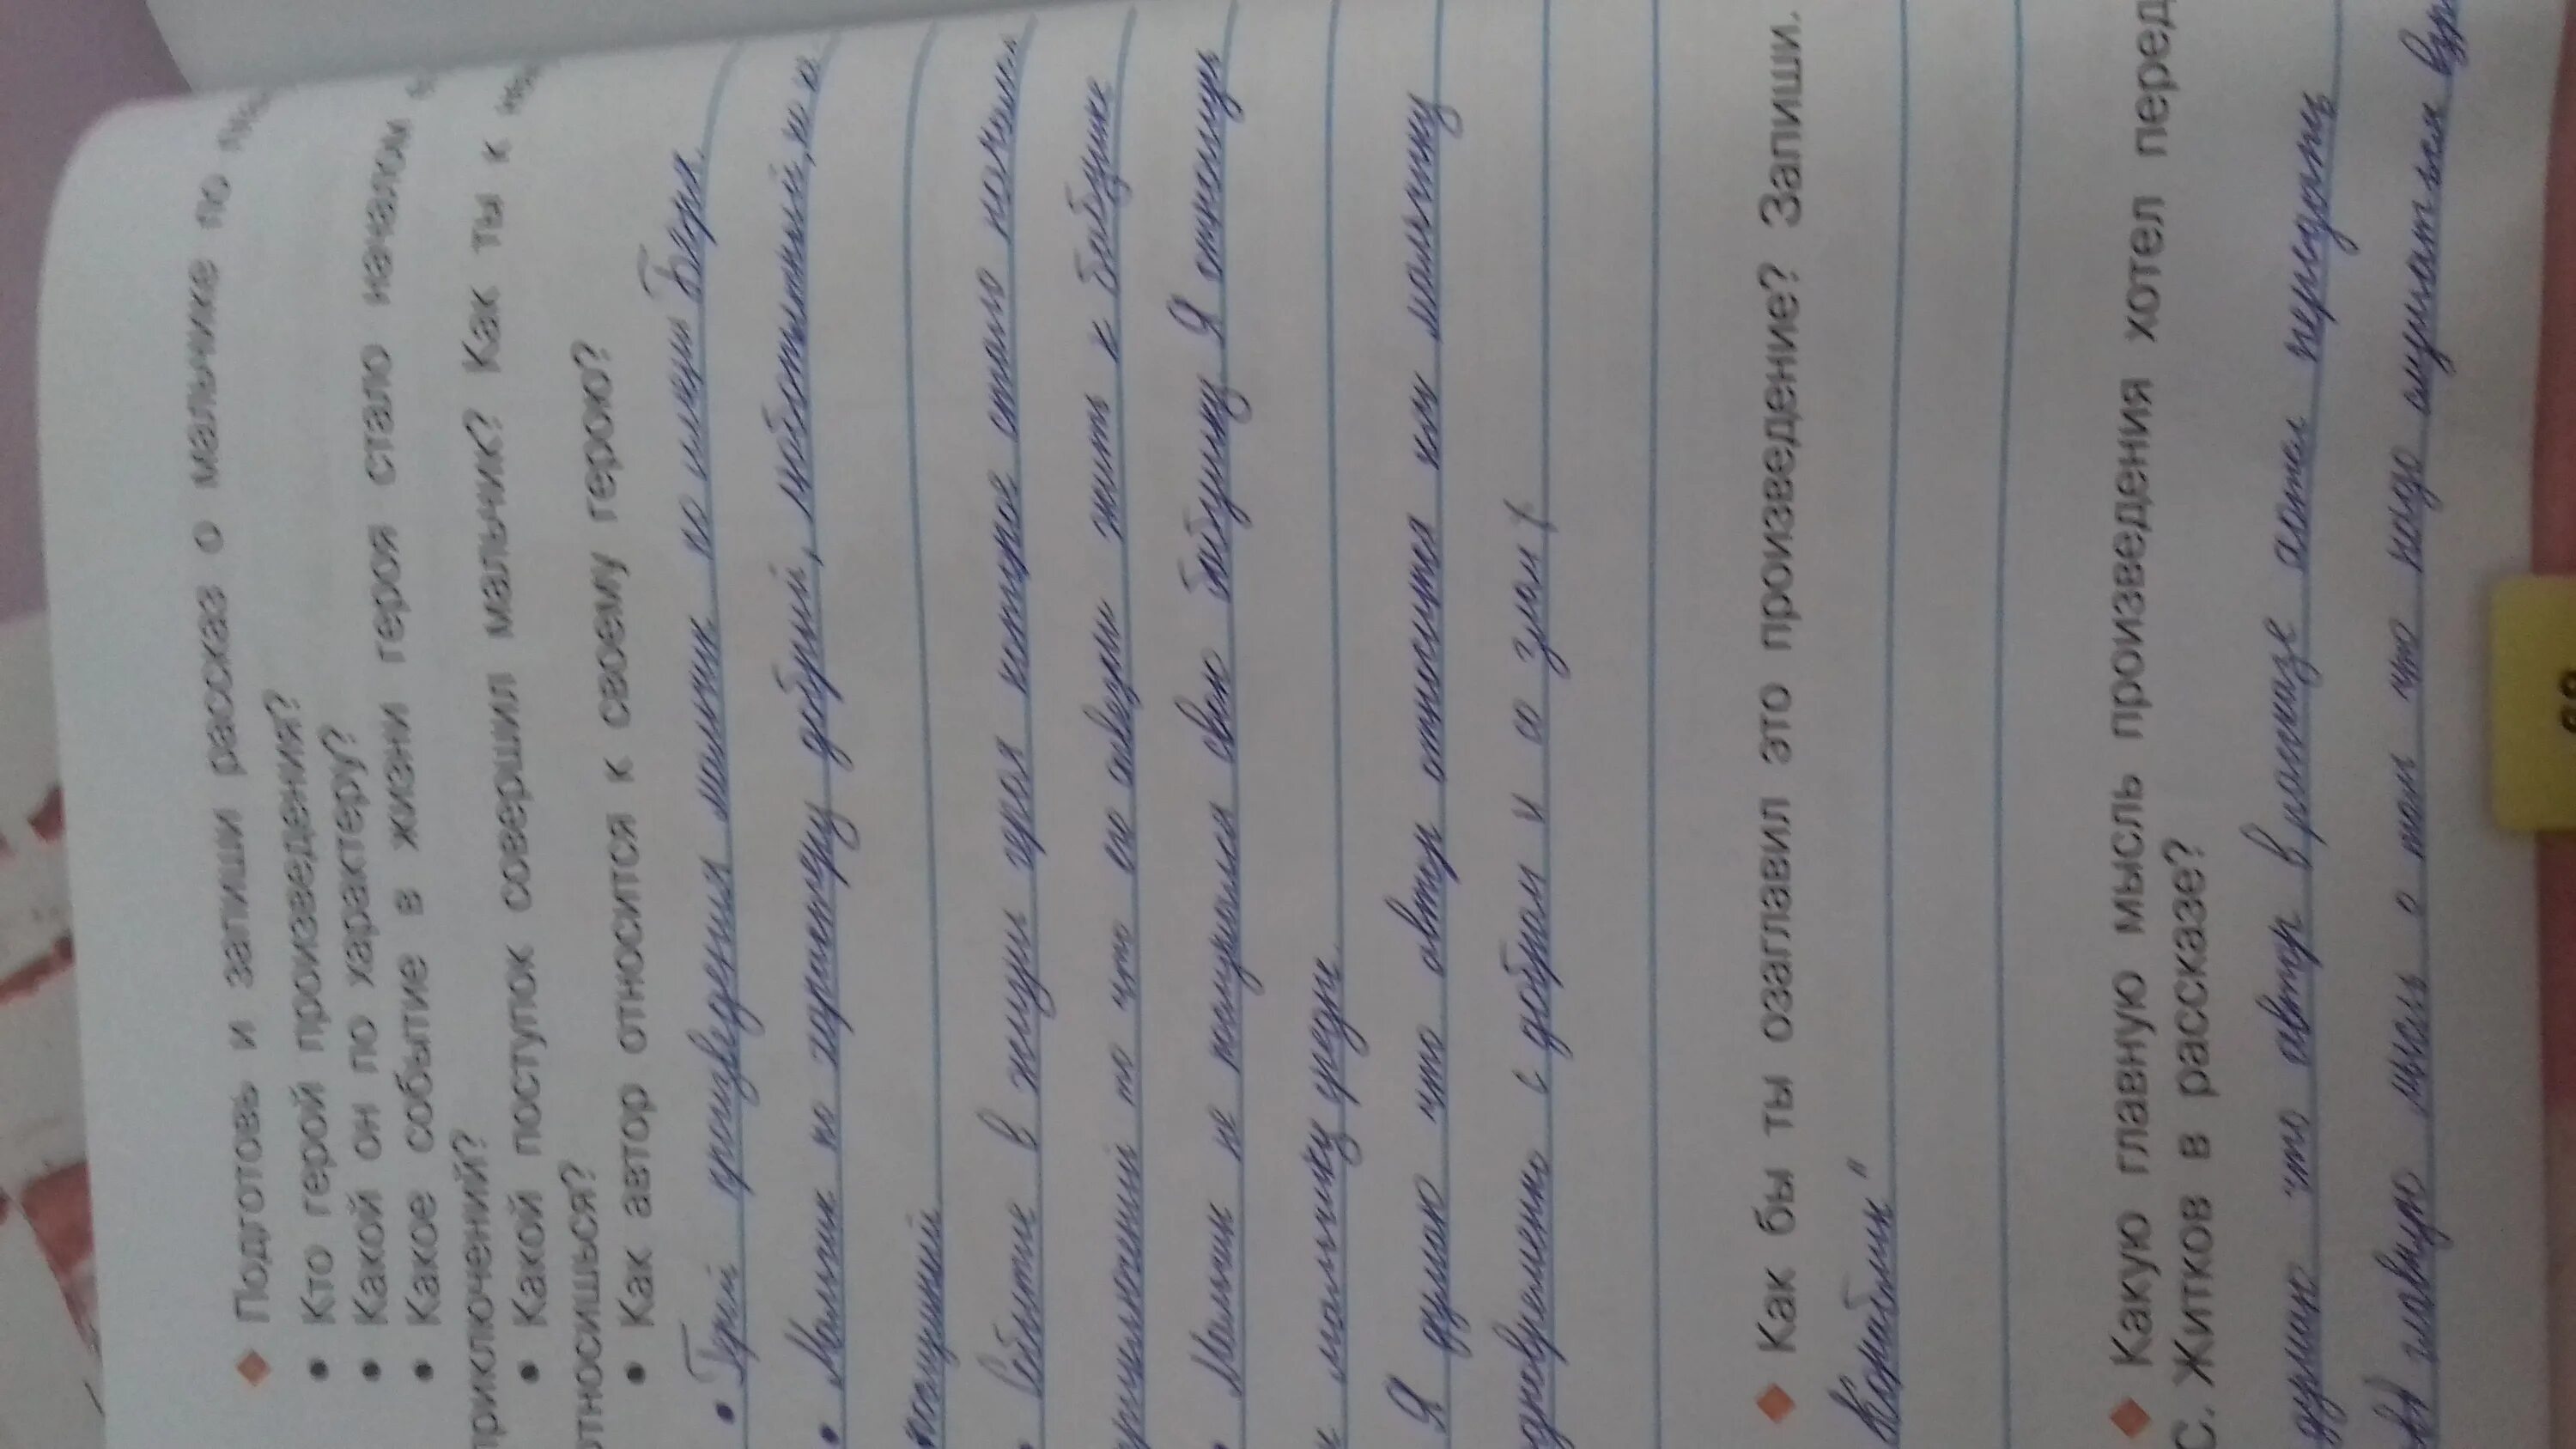 Подготовь и запиши рассказ о мальчике по
Кто герой произведения?
Какой он по характеру?
Какое событие в жизни героя стало началом
приключений?
Какой поступок совершил мальчик? Как ты к
относишься?
Как автор относится к своему герою?
Герой произведения мальчик по имени Боря.
Мальчик по характеру добрый, любопытный,
Событие в жизни героя которое стало
что его отвезли жить к бабушке
Мальчик не послушался свою бабушку Я отношусь
к мальчику
Я думаю что автор относится к мальчику
одновременно с добром и со злом
Как бы ты озаглавил это произведение? Запиши.
Кораблик"
Какую главную мысль произведения хотел перед
С. Житков в рассказе?
думаю что автор в рассказе хотел передать
главную мысль о том что надо слушаться